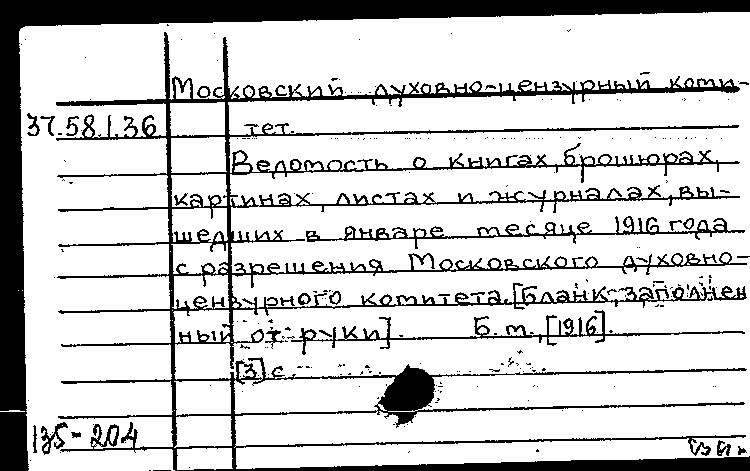 Московский духовно-цензурный коми-
37.58.1.36 тет.
Ведомость о книгах, брошюрах,
картинах, листах и журналах, вы-
шедших в январе месяце 1916 года
с разрешения Московского духовно-
цензурного комитета. [Бланк, заполнен
ный от руки]. Б.м., [1916].
[3] с.
135-204